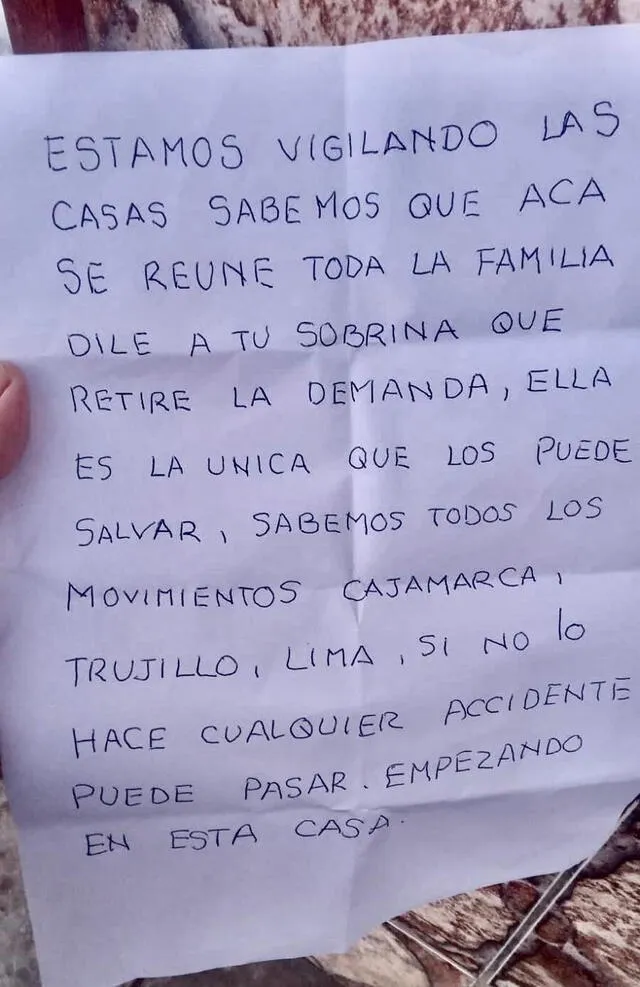 ESTAMOS VIGILANDO LAS
CASAS SABEMOS QUE ACA
SE REUNE TODA LA FAMILIA
DILE A TU SOBRINA QUE
RETIRE LA DEMANDA, ELLA
ES LA UNICA QUE LOS PUEDE
SALVAR, SABEMOS TODOS LOS
MOVIMIENTOS CAJAMARCA,
TRUJILLO, LIMA, SI NO lo
HACE CUALQUIER ACCIDENTE
PUEDE PASAR. EMPEZANDO
EN ESTA CASA.